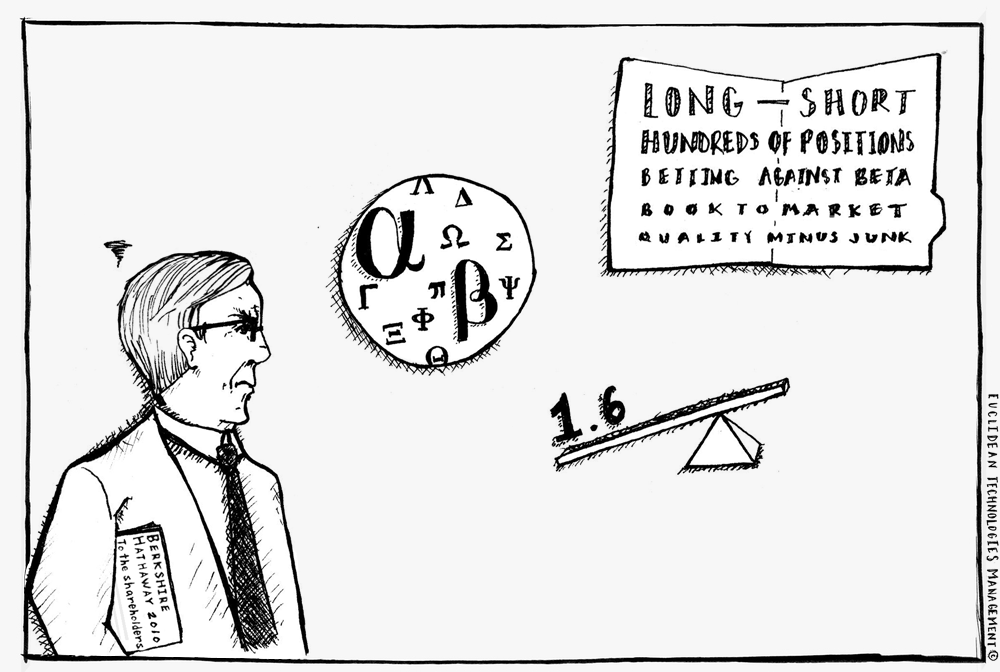 LONG — SHORT
HUNDREDS OF POSITIONS
BETTING AGAINST BETA
BOOK TO MARKET
QUALITY MINUS JUNK
Λ Δ
α Ω Σ
Γ π β Ψ
Ξ Φ
Θ
1.6
BERKSHIRE
HATHAWAY 2010
To the shareholders
EUCLIDEAN TECHNOLOGIES MANAGEMENT ©